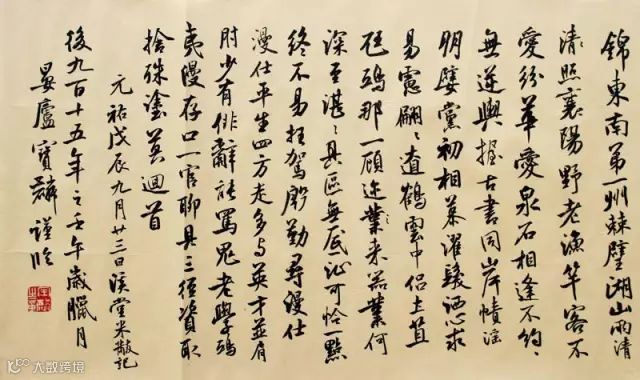 錦東南第一州棘璧湖山兩清
清照襄陽野老漁竿客不
愛紛華愛泉石相逢不約、
無逆輿握古書同岸幘淫
朋嬖黨初相慕濯髮洒心求
易慮翩、遼鶴雲中侣土苴
尫鴟那一顧迩業来器業何
深至湛、具區無底沚可怜一點
終不易枉駕殷勤尋漫仕
漫仕平生四方走多与英才並肩
肘少有俳辭能罵鬼老學鴟
夷漫存口一官聊具三徑資取
捨殊塗莫迴首
元祐戊辰九月廿三日溪堂米黻記
後九百十五年之壬午歲臘月
晏廬寶麟謹臨
大数跨境